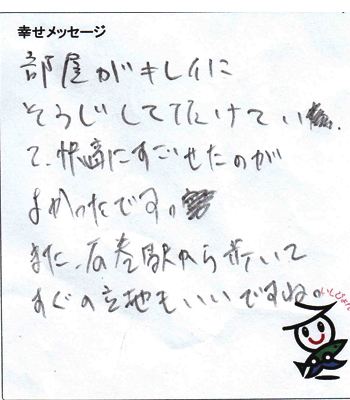 幸せメッセージ
部屋がキレイに
そうじして頂けてい
て、快適にすごせたのが
よかったです。
また、石巻駅から歩いて
すぐの立地もいいですね。